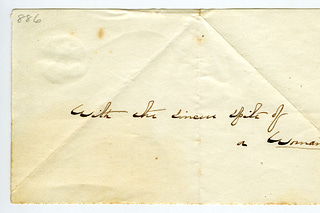 886
With the sincere spite of
a Woman